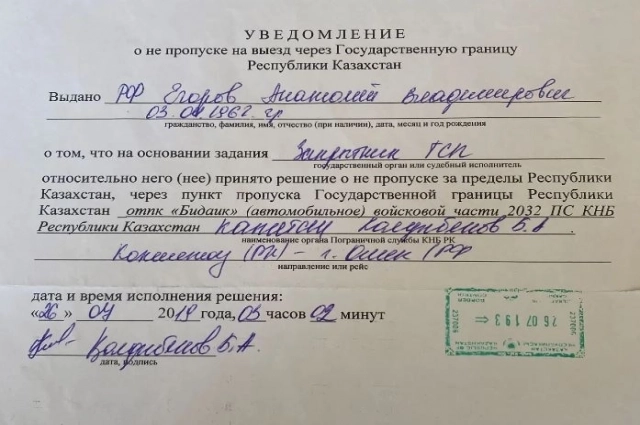 УВЕДОМЛЕНИЕ
о не пропуске на выезд через Государственную границу
Республики Казахстан
Выдано РФ Егоров Анатолий Владимирович
03.01.1962 гр
гражданство, фамилия, имя, отчество (при наличии), дата, месяц и год рождения
о том, что на основании задания Запретник ГСП
государственный орган или судебный исполнитель
относительно него (нее) принято решение о не пропуске за пределы Республики
Казахстан, через пункт пропуска Государственной границы Республики
Казахстан отпк «Бидаик» (автомобильное) войсковой части 2032 ПС КНБ
Республики Казахстан капитан Колдыбеков Б.А.
наименование органа Пограничной службы КНБ РК
(РК) – г. Омск (РФ
направление или рейс
дата и время исполнения решения:
«26» 07 2019 года, 03 часов 02 минут
Колдыбеков Б.А.
дата, подпись
26 07 19 3
237006